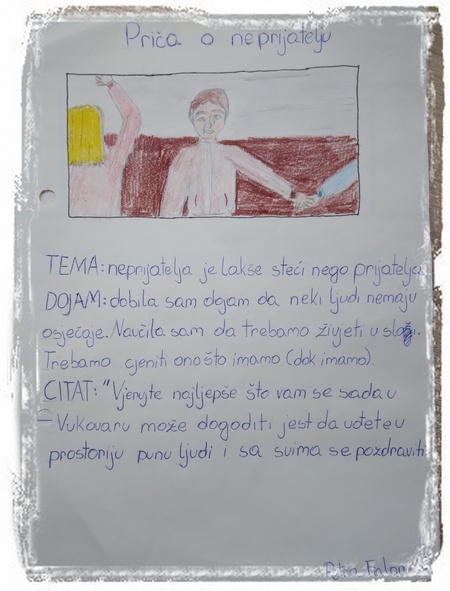 Priča o neprijatelju
TEMA: neprijatelja je lakše steći nego prijatelja.
DOJAM: dobila sam dojam da neki ljudi nemaju
osjećaje. Naučila sam da trebamo živjeti u
Trebamo cjeniti ono što imamo (dok imamo).
CITAT: "Vjerujte najljepše što vam se sada u
Vukovaru može dogoditi jest da uđete u
prostoriju punu ljudi i sa svima se pozdraviti